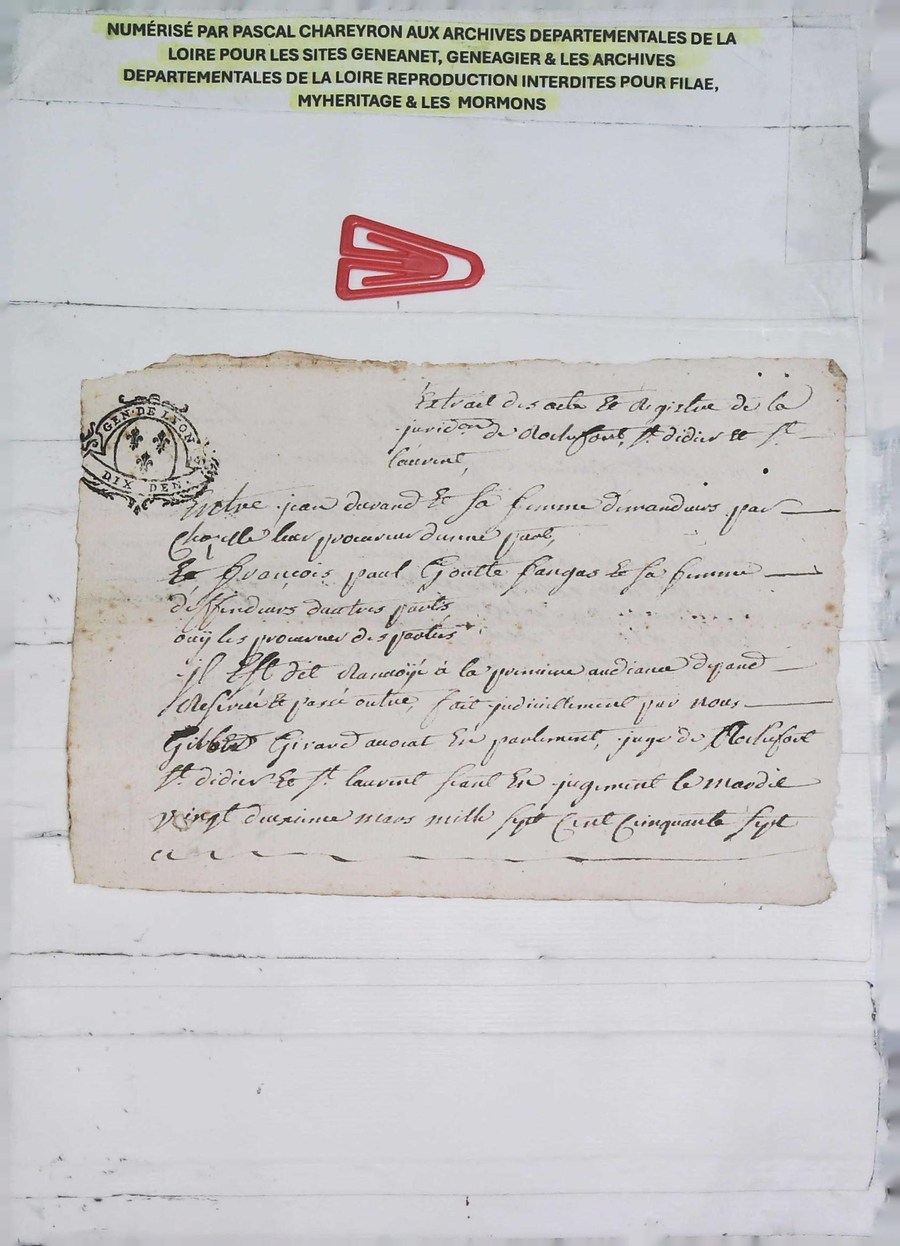 NUMÉRISÉ PAR PASCAL CHAREYRON AUX ARCHIVES DEPARTEMENTALES DE LA
LOIRE POUR LES SITES GENEANET, GENEAGIER & LES ARCHIVES
DEPARTEMENTALES DE LA LOIRE REPRODUCTION INTERDITES POUR FILAE,
MYHERITAGE & LES MORMONS
GEN. DE LYON
DIX DEN.
Extrait des acte Et Registre de la
jurid.on de Rochefort, St didier Et St
laurent,
Entre jean durand Et sa femme demandeurs par
leur procureur dune part,
Et françois paul Goutte fangas Et sa femme
deffendeurs dautres parts
ouÿ les procureur des parties
jl Est dit a la premiere audiance depand
Reservée Et passé outre, fait judiciellement par nous
Girard avocat En parlement, juge de Rochefort
St didier Et St laurent seant En jugement le mardie
vingt deuxieme mars mille sept Cent Cinquante sept